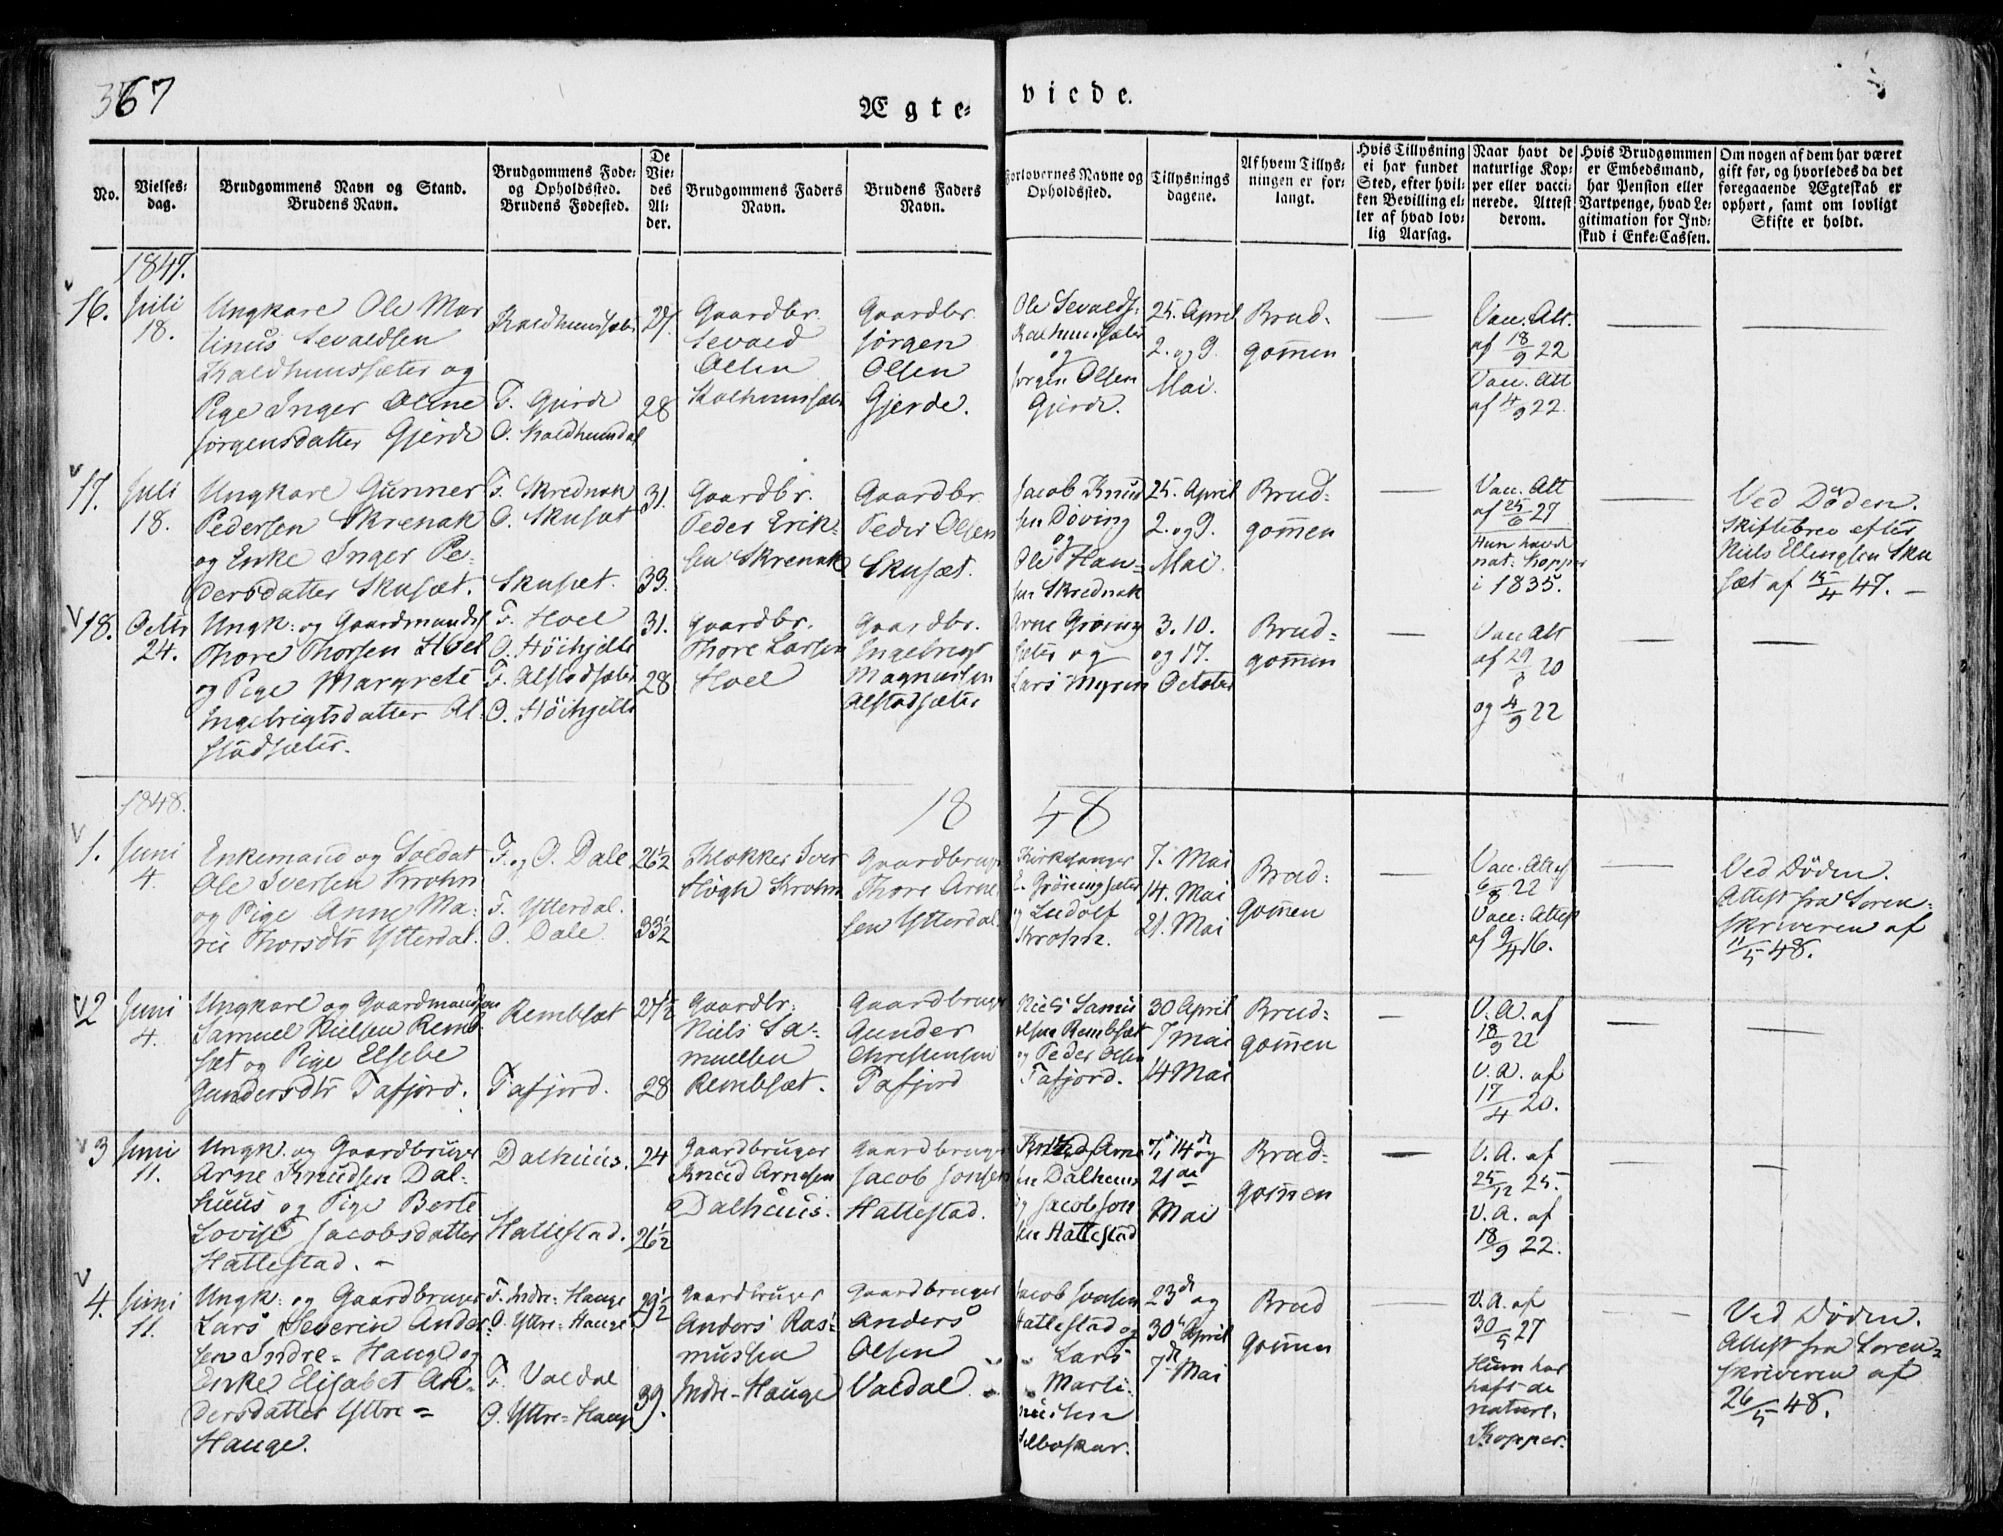 367
Ægte= viede.
No.
Vielses=
dag.
Brudgommens Navn og Stand.
Brudens Navn.
Brudgommens Føde=
og Opholdssted.
Brudens Fødested.
De
Vie=
des
Al=
der.
Brudgommens Faders
Navn.
Brudens Faders
Navn.
Forlovernes Navne og
Opholdssted.
Tillysnings
dagene.
Af hvem Tillys=
ningen er for=
langt.
Hvis Tillysning
ei har fundet
Sted, efter hvil=
ken Bevilling el=
ler af hvad lov=
lig Aarsag.
Naar havt de
naturlige Kop=
per eller vacci=
nerede. Attest
derom.
Hvis Brudgommen
er Embedsmand,
har Pension eller
Vartpenge, hvad Le=
gitimation for Ind=
skud i Enke=Cassen.
Om nogen af dem har været
gift før, og hvorledes da det
foregaaende Ægteskab er
ophørt, samt om lovligt
Skifte er holdt.
1847.
16.
Juli
18.
Ungkarl Ole Mar
tinus Sevaldsen
Kaldhunssæter og
Pige Inger Oline
Jørgensdatter Gjerde
Kaldhunssæter
F. Gjerde
O. Kaldhundal
28
Gaardbr.
Sevald
Olsen
Gaardbr.
Jørgen
Olsen
Gjerde.
Ole Sevalds.
og
Jørgen Olsen
Gjerde.
25. April
2. og 9.
Mai.
Brud=
gommen
Vacc. Att.
af 18/9 22
Vacc. Att
af 4/9 22.
17.
Juli
18.
Ungkarl Gunner
Pedersen Skrenak
og Enke Inger Pe=
dersdatter Skusæt.
F. Skrednak
O. Skusæt
Skusæt.
31.
39.
Gaardbr.
Peder Erik=
sen Skrenak
Gaardbr.
Peder Olsen
Skusæt.
Jacob Knud
sen Døving
og
Ole Han=
sen Skrednak
25. April
2. og 9.
Mai.
Brud=
gommen
Vacc. Att
af 25/6 27
Hun havde
nat. Kopper
i 1835.
Ved Døden.
Skiftebrev efter
Niels Ellingsen Sku
sæt af 15/4 47.
18.
Octbr
24.
Ungk: og Gaardmands
Thore Thorsen Hoel
og Pige Margrete
Ingebrigtsdatter Al=
stadsæter.
F. Hoel
O. Höihjelle
F. Alstadsæter
O. Höihjelle
31.
28
Gaardbr.
Thore Larsen
Hoel
Gaardbr.
Ingebrigt
Magnussen
Alstadsæter
Arne Grøning
sæter og
Lars Myren
3. 10.
og 17.
October
Brud=
gommen
Vacc Att
af 29/8 20
og 4/9 22
1848.
1848
1.
Juni
4.
Enkemand og Soldat
Ole Iversen Krohn
og Pige Anne Ma=
rie Thorsdtr Ytterdal.
F. og O. Dale
F. Ytterdal.
O. Dale.
26½
33½
Klokker Iver
Høgh Krohn
Gaardbruger
Thore Arne
sen Ytterdal.
Kirkesanger
E. Grøningsæter
og Ludolf
Krohn.
7. Mai
14. Mai
21. Mai
Brud=
gommen
Vacc. Att af
6/8 22
Vacc: Attest
af 9/4 16.
Ved Døden.
Attest fra Soren=
skriveren af
11/5 48.
2
Juni
4.
Ungkarl og Gaardmandssøn
Samuel Nielsen Remb
sæt og Pige Elsebe
Gundersdtr Tafjord.
Rembsæt
Tafjord.
27½
28
Gaardbr.
Niels Sa=
muelsen
Rembsæt.
Gaardbruger
Gunder
Christensen
Tafjord
Niels Samu
elsen Rembsæt
og Peder Olsen
Tafjord.
30 April
7 Mai
14 Mai
Brud=
gommen
V. A. af
18/9 22
V. A. af
17/4 20.
3
Juni
11.
Ungk. og Gaardbruger
Arne Knudsen Dal=
huus og Pige Berte
Lovise Jacobsdatter
Hattestad.
Dalhuus.
Hattestad.
24
26½
Gaardbruger
Knud Arnesen
Dalhuus.
Gaardbruger
Jacob Jonsen
Hattestad.
Knud Arne
sen Dalhuus
og Jacob Jon
sen Hattestad
7de 14de og
21de
Mai
Brud=
gommen
V. A. af
25/12 25.
V. A. af
18/9 22.
4.
Juni
11.
Ungk: og Gaardbruger
Lars Severin Ander
sen Indre=Hauge og
Enke Elisabet An=
dersdatter Yttre=
Hauge.
F. Indre=Hauge
O. Yttre=Hauge
F. Valdal
O. Yttre=Hauge
29½
39.
Gaardbruger
Anders Ras=
mussen
Indre-Hauge
Gaardbruger
Anders
Olsen
Valdal.
Jacob Jonsen
Hattestad og
Lars
Marti
nussen
23de og
30te April
7de Mai
Brud
gommen
V. A. af
30/5 27
Hun har
havt de
naturl.
Kopper.
Ved Døden.
Attest fra Soren=
skriveren af
26/5 48.